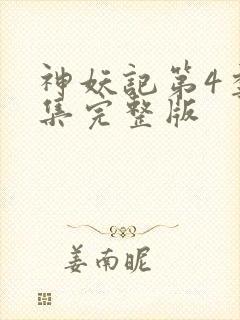 神妖記第4
集完整版
姜南昵